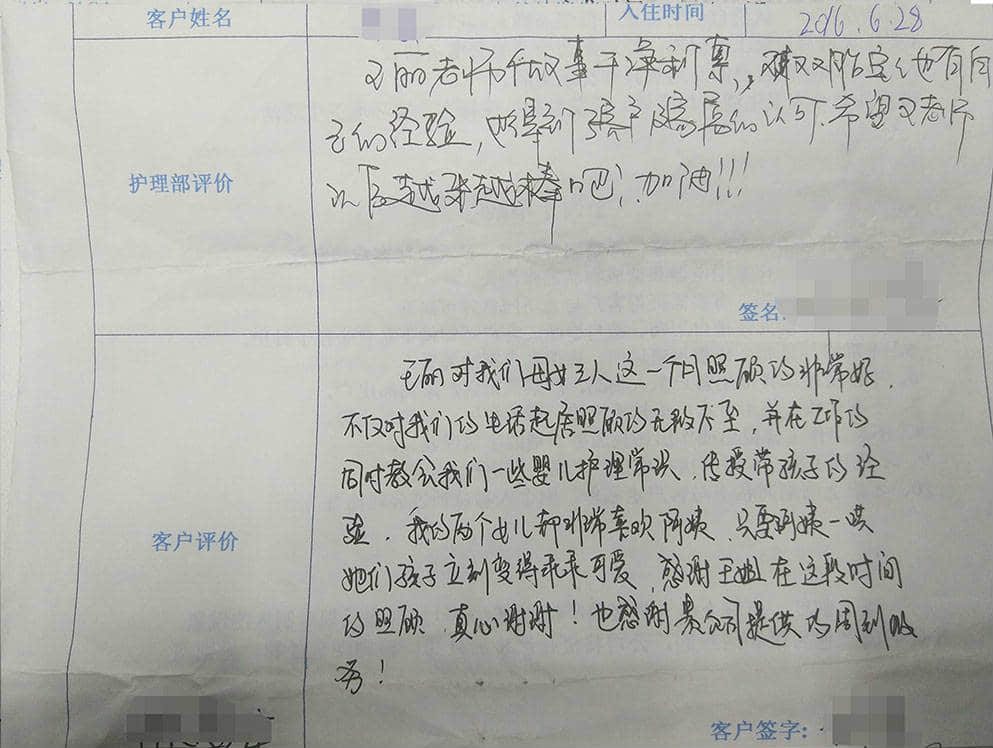 客户姓名 入住时间 2016.6.28
护理部评价
王丽老师做事干净利索,对双胞胎宝宝也有自
己的经验,也得到了客户的认可,希望王老师
以后越来越棒吧!加油!!!
签名:
客户评价
王丽对我们母女三人这一个月照顾的非常好,
不仅对我们的生活起居照顾的无微不至,并在工作的
同时教会我们一些婴儿护理常识,传授带孩子的经
验,我的两个女儿都非常喜欢阿姨,只要阿姨一哄
她们孩子立刻变得乖乖可爱,感谢王姐在这段时间
的照顾,真心谢谢!也感谢贵公司提供的周到服
务!
客户签字: